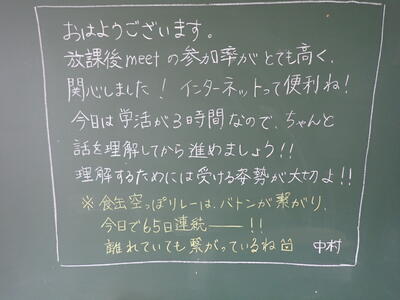 おはようございます。
放課後meetの参加率がとても高く、
関心しました！インターネットって便利ね！
今日は学活が3時間なので、ちゃんと
話を理解してから進めましょう!!
理解するためには受ける姿勢が大切よ!!
※食缶空っぽリレーは、バトンが繋がり、
今日で65日連続——!!
離れていても繋がっているね
中村